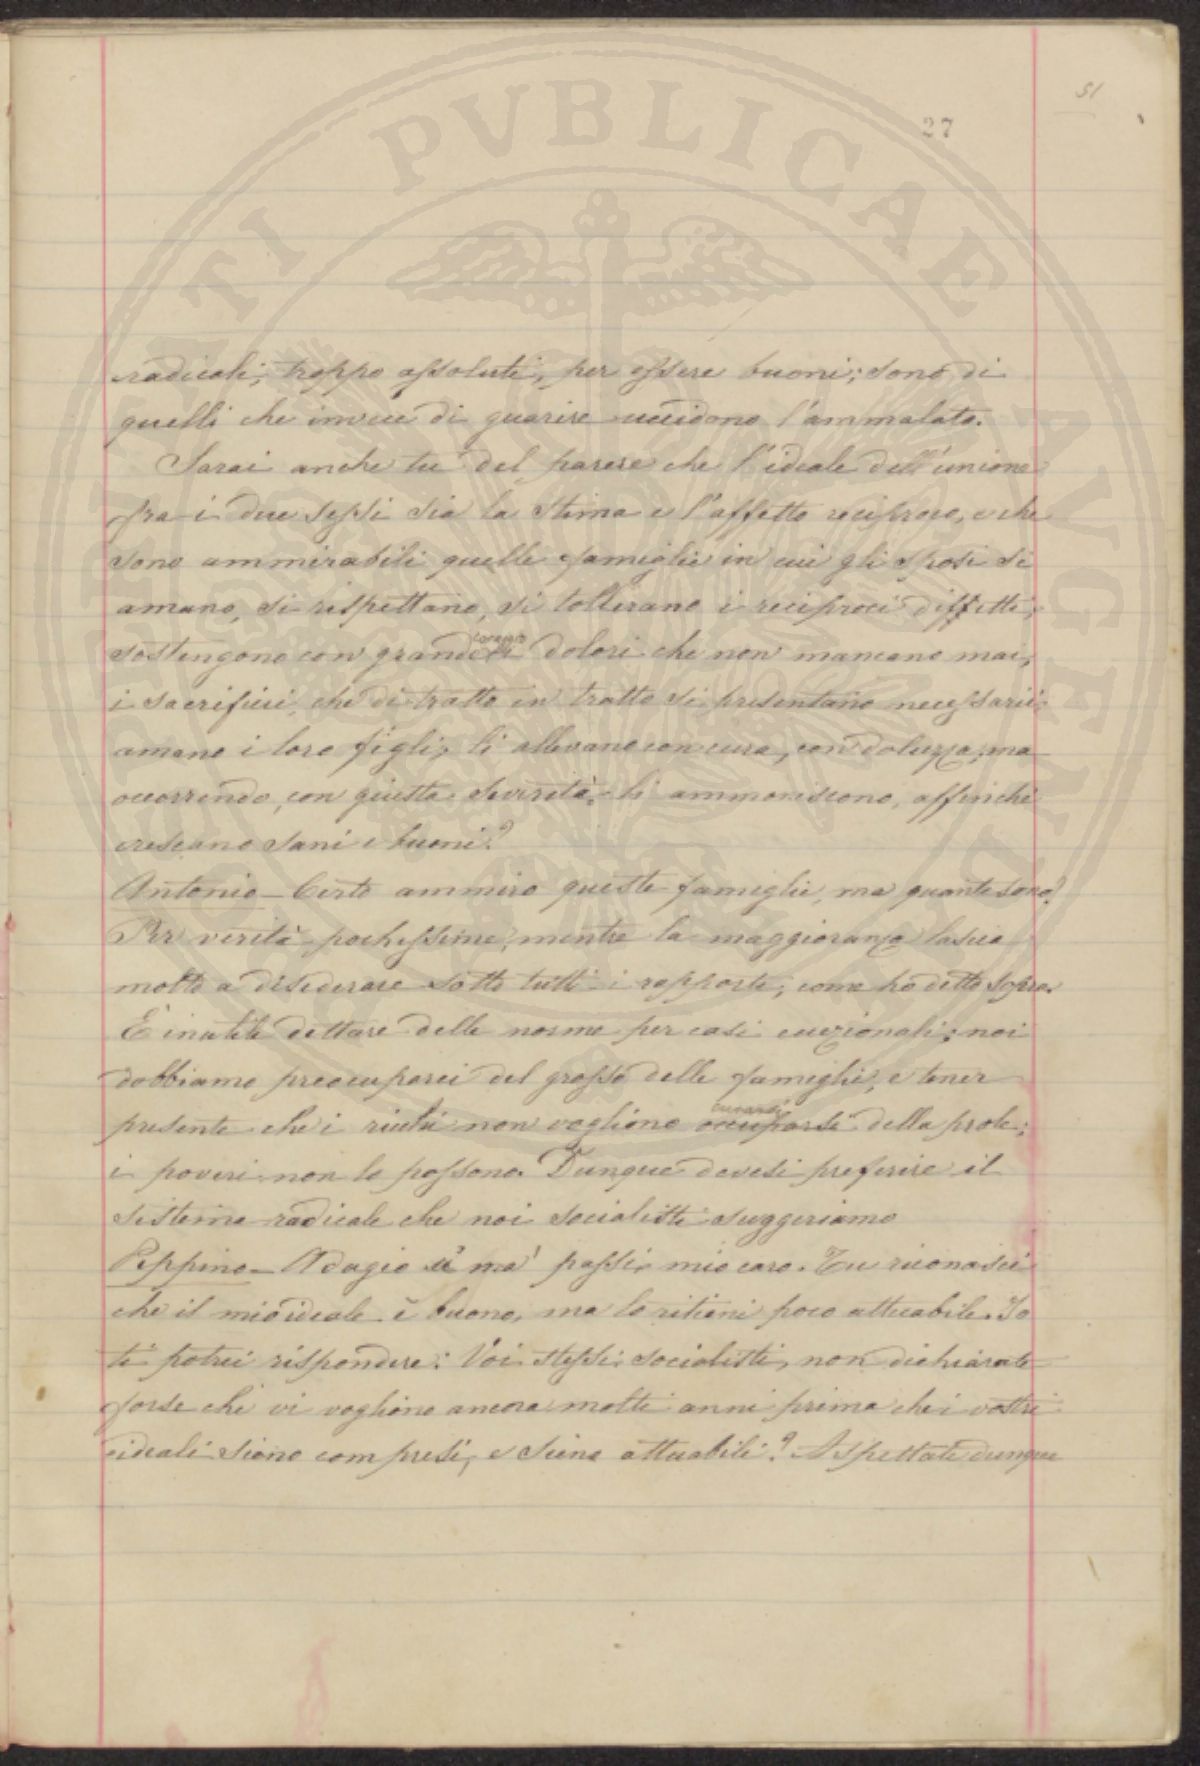 51
27
radicali, troppo assoluti, per essere buoni; sono di
quelli che invece di guarire uccidono l'ammalato.
Sarai anche tu del parere che l'ideale dell'unione
fra i due sessi sia la stima e l'affetto reciproco, e che
sono ammirabili quelle famiglie in cui gli sposi si
amano, si rispettano, si tollerano i reciproci diffetti,
coraggio
sostengono con grande i dolori che non mancano mai,
i sacrifici, che di tratto in tratto si presentano necessarii;
amano i loro figli, li allevano con cura, con dolcezza, ma
occorrendo, con giusta severità, li ammoniscono, affinché
crescano sani e buoni?
Antonio – Certo ammiro queste famiglie, ma quante sono?
Per verità pochissime, mentre la maggioranza lascia
molto a desiderare sotto tutti i rapporti, come ho detto sopra.
È inutile dettare delle norme per casi eccezionali; noi
dobbiamo preoccuparci del grosso delle famiglie, e tener
curarsi
presente che i ricchi non vogliono occuparsi della prole;
i poveri non lo possono. Dunque devesi preferire il
sistema radicale che noi socialisti suggeriamo
Peppino – Adagio a' ma' passi, mio caro. Tu riconosci
che il mio ideale è buono, ma lo ritieni poco attuabile. Io
ti potrei rispondere: Voi stessi socialisti, non dichiarate
forse che vi vogliono ancora molti anni prima che i vostri
ideali siano compresi, e siano attuabili? Aspettate dunque
PVBLICAE